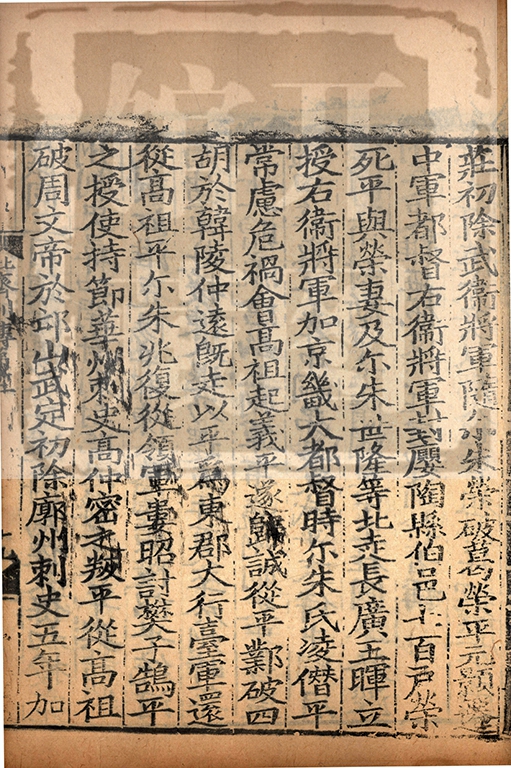 莊初除武衛將軍隨尒朱榮破葛榮平元顥遷
中軍都督右衛將軍封廮陶縣伯邑七百戶榮
死平與榮妻及尒朱世隆等北走長廣王曄立
授右衛將軍加京畿大都督時尒朱氏凌僭平
常慮危禍會髙祖起義平遂歸誠從平鄴破四
胡於韓陵仲遠旣走以平爲東郡大行臺軍還
從髙祖平尒朱兆復從領軍婁昭討樊子鵠平
之授使持節華州刺史髙仲密之叛平從髙祖
破周文帝於邙山武定初除廓州刺史五年加